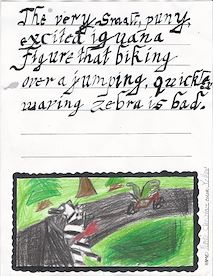 The very small, puny,
excited iguana
Figure that biking
over a jumping, quickly
waving zebra is bad.